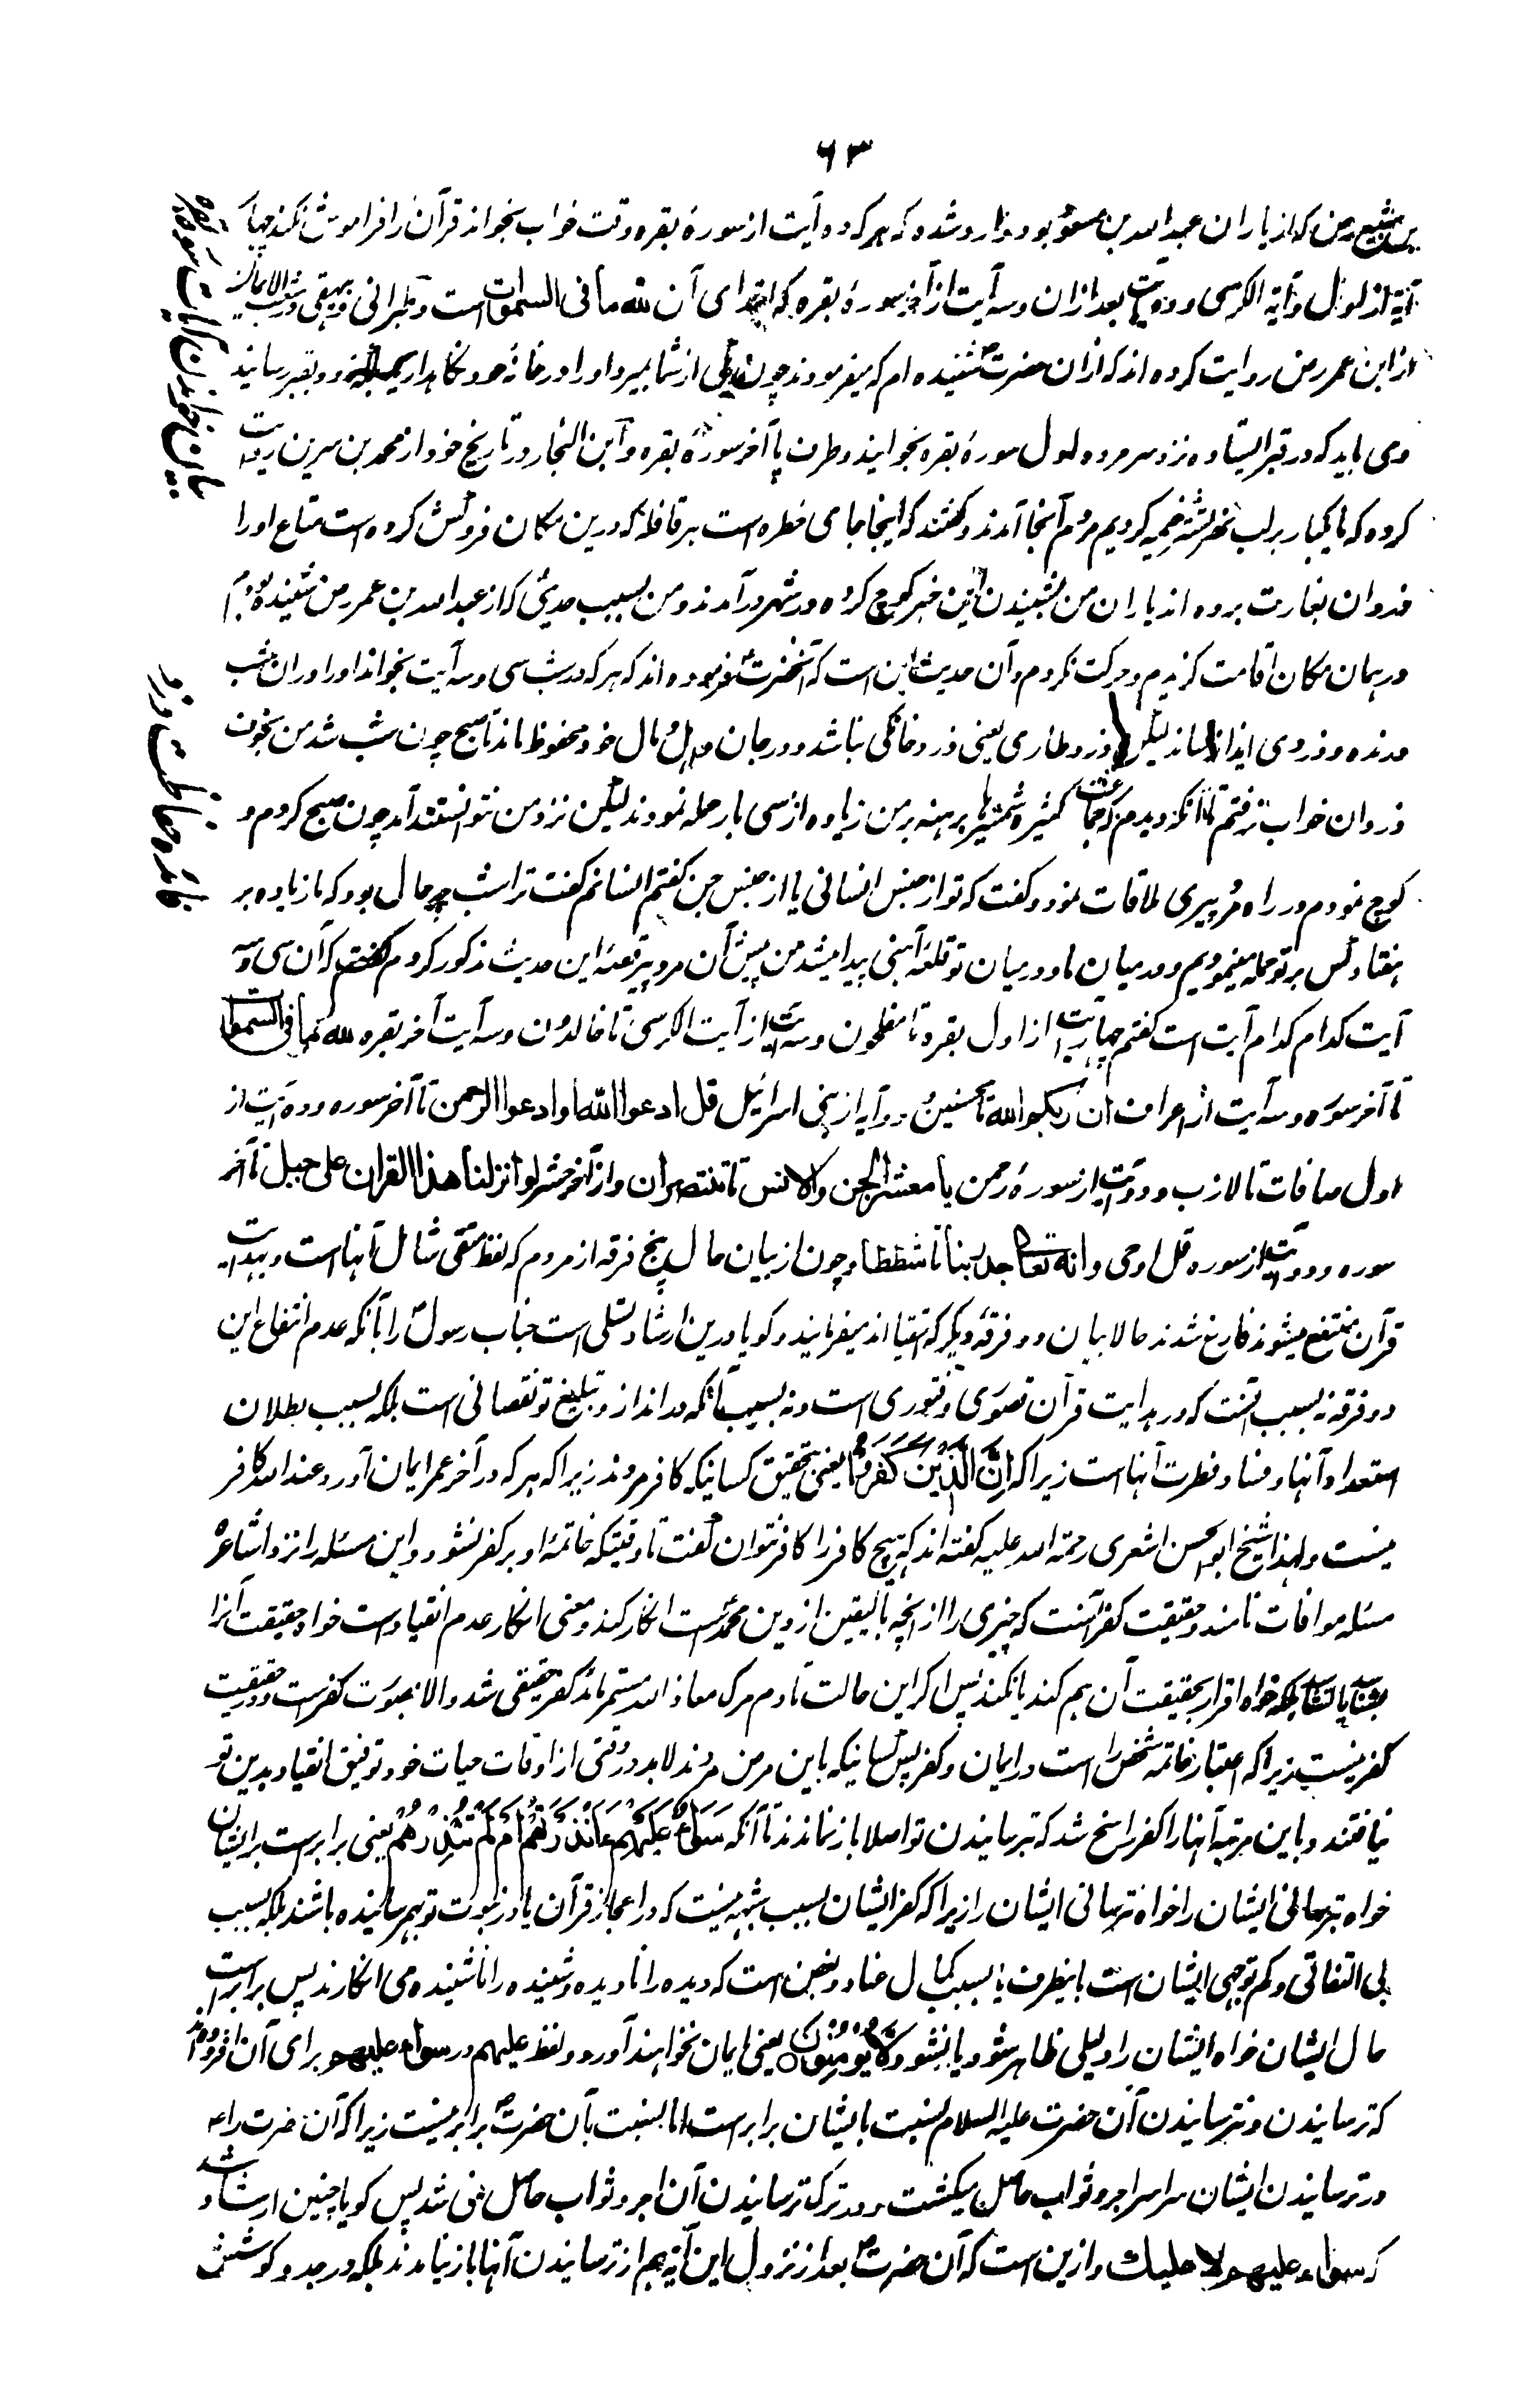 ۶۳
بن سبیع رض که از یاران عبد الله بن مسعود بود وارد شده که هر که ده آیت از سورهٔ بقره وقت خواب بخواند قرآن را فراموش نکند چهار
آیه از اول و آیة الکرسی و دو آیت بعد ازان و سه آیت از آخر سورهٔ بقره که ابتدای آن لله ما فی السموات است و طبرانی و بیهقی در شعب الایمان
از ابن عمر رض روایت کرده اند که ازان حضرت ص شنیده ام که میفرمودند چون یکی از شما بمیرد او را در خانهٔ خود نگاه دارید بلکه زود بقبر رسانید
و می باید که در قبر ایستاده نزد سر مرده اول سورهٔ بقره بخوانید و طرف پا آخر سورهٔ بقره و ابن النجار در تاریخ خود از محمد بن سیرین روایت
کرده که ما یکبار بر لب نهر تشتر خیمه کردیم مردم آنجا آمدند و گفتند که اینجا جای خطره است هر قافله که درین مکان فروکش کرده است متاع او را
دزدان بغارت برده اند یاران من بشنیدن این خبر کوچ کرده در شهر در آمدند و من بسبب حدیثی که از عبد الله بن عمر رض شنیده بودم
در همان مکان اقامت گزیدم و حرکت نکردم و آن حدیث این است که آنحضرت ص فرموده اند که هر که در شب سی و سه آیت بخواند او را دران شب
درنده و دزدی ایذا نرساند لیکن دزد طاری یعنی دزد خانگی نباشد و در جان و اهل و مال خود محفوظ ماند تا صبح چون شب شد من بخوف
دزدان خواب نرفتم تا آنکه دیدم که جماعت کثیره شمشیرها برهنه بر من زیاده از سی بار حمله نمودند لیکن نزد من نتوانستند آمد چون صبح کردم و
کوچ نمودم در راه مرد پیری ملاقات نمود و گفت که تو از جنس انسانی یا از جنس جن گفتم انسانم گفت ترا شب چه حال بود که ما زیاده بر
هفتاد کس بر تو حمله مینمودیم و در میان ما و در میان تو قلعه آهنی پیدا میشد من پیش آن مرد پیر قصهٔ این حدیث مذکور کردم گفت که آن سی و سه
آیت کدام کدام آیت است گفتم چهار آیت از اول بقره تا مفلحون و سه آیت از آیت الکرسی تا خالدون و سه آیت آخر بقره لله ما فی السموات
تا آخر سوره و سه آیت از اعراف ان ربکم الله تا محسنین و دو آیه از بنی اسرائیل قل ادعوا الله او ادعوا الرحمن تا آخر سوره و ده آیت از
اول صافات تا لازب و دو آیت از سورهٔ رحمن یا معشر الجن و الانس تا تنتصران و از آخر حشر لو انزلنا هذا القران علی جبل تا آخر
سوره و دو آیت از سوره قل اوحی و انه تعالی جد ربنا تا شططا و چون از بیان حال پنج فرقه از مردم که لفظ متقی شامل آنها است و بهدایت
قرآن منتفع میشوند فارغ شدند حالا بیان دو فرقهٔ دیگر که اشقیا اند میفرمایند و گویا درین ارشاد تسلی است جناب رسول را بآنکه عدم انتفاع این
دو فرقه نه بسبب آنست که در هدایت قرآن قصوری و فتوری است و نه بسبب آنکه در انذار و تبلیغ تو نقصانی است بلکه بسبب بطلان
استعداد آنها و فساد فطرت آنها است زیرا که اِنَّ الَّذِیْنَ کَفَرُوْا یعنی بتحقیق کسانیکه کافر مردند زیرا که هر که در آخر عمر ایمان آورد عند الله کافر
نیست و لهذا شیخ ابو الحسن اشعری رحمة الله علیه گفته اند که هیچ کافر را کافر نتوان گفت تا وقتیکه خاتمهٔ او بر کفر نشود و این مسئله را نزد اشاعره
مسئله موافات نامند و حقیقت کفر آنست که چیزی را از آنچه بالیقین از دین محمد است انکار کند و معنی انکار عدم انقیاد است خواه حقیقت آنرا
بشناسد یا نشناسد بلکه خواه اقرار بحقیقت آن هم کند یا نکند پس اگر این حالت تا دم مرگ معاذ الله مستمر ماند کفر حقیقی شد و الا بصورت کفر است و در حقیقت
کفر نیست زیرا که اعتبار خاتمه شخص را است در ایمان و کفر پس کسانیکه باین مرض مردند لابد در وقتی از اوقات حیات خود توفیق انقیاد بدین تو
نیافتند و باین مرتبه آنها را کفر راسخ شد که بترسانیدن تو اصلا باز نماندند تا آنکه سَوَآءٌ عَلَیْهِمْ ءَاَنْذَرْتَهُمْ اَمْ لَمْ تُنْذِرْهُمْ یعنی برابر است بر ایشان
خواه بترسانی ایشان را خواه نترسانی ایشان را زیرا که کفر ایشان بسبب شبهه نیست که در اعجاز قرآن یا در نبوت تو بهم رسانیده باشند بلکه بسبب
بی التفاتی و کم توجهی ایشان است باینطرف یا بسبب کمال عناد و بغض است که دیده را نادیده و شنیده را ناشنیده می انگارند پس برابر است
حال ایشان خواه ایشان را دلیلی ظاهر شود یا نشود لَا یُؤْمِنُوْنَ یعنی ایمان نخواهند آورد و لفظ علیهم در سواء علیهم برای آن افزوده اند
که ترسانیدن و نترسانیدن آن حضرت علیه السلام نسبت بایشان برابر است اما بنسبت بآن حضرت ص برابر نیست زیرا که آن حضرت را
در ترسانیدن ایشان سراسر اجر و ثواب حاصل میگشت و در ترک ترسانیدن آن اجر و ثواب حاصل نمی شد پس گویا چنین ارشاد شد
که سواء علیهم لا علیک و ازین است که آن حضرت ص بعد از نزول این آیه هم از ترسانیدن آنها باز نیامدند بلکه در جد و کوشش